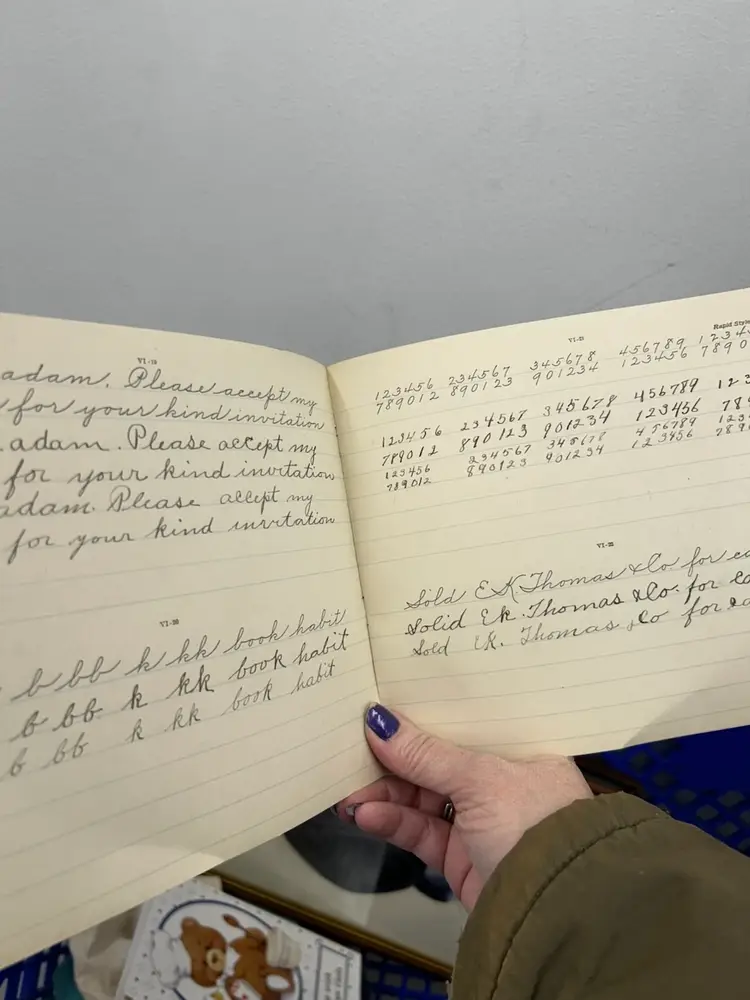 VI-19
adam. Please accept my
for your kind invitation
adam. Please accept my
for your kind invitation
adam. Please accept my
for your kind invitation
VI-20
b bb k kk book habit
b bb k kk book habit
b bb k kk book habit
VI-21
Rapid Style
123456 234567 345678 456789 1234
789012 890123 901234 123456 7890
123456 234567 345678 456789 123
789012 890123 901234 123456 78
123456 234567 345678 456789 123
789012 890123 901234 123456 789
VI-22
Sold E K Thomas & Co for ca
Solid Ek. Thomas & Co. for ca
Sold Ek. Thomas & Co for ca